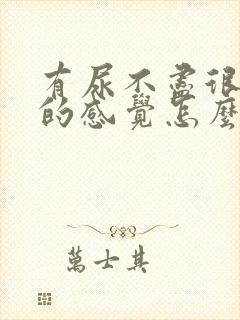 有尿不盡很
的感覺怎麼
萬士其